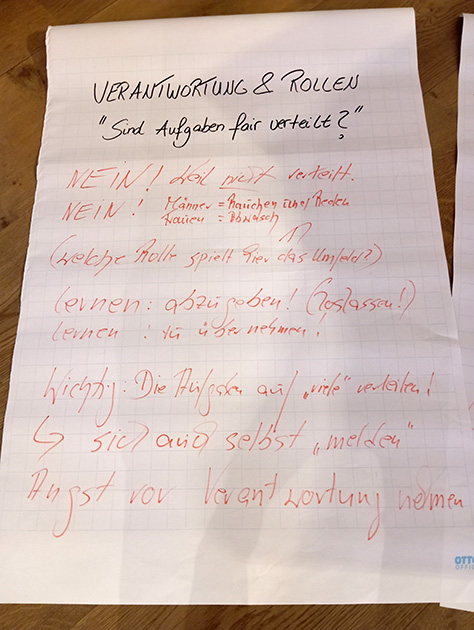 VERANTWORTUNG & ROLLEN
"Sind Aufgaben fair verteilt?"
NEIN! Weil nicht verteilt.
NEIN! Männer = Rauchen und Reden
Frauen = Abwasch
(Welche Rolle spielt hier das Umfeld?)
Lernen: abzugeben! (Loslassen!)
Lernen : zu übernehmen!
Wichtig: Die Aufgaben auf „viele" verteilen!
↳ sich auch selbst „melden"
Angst vor Verantwortung nehmen
OTTO
OFFICE